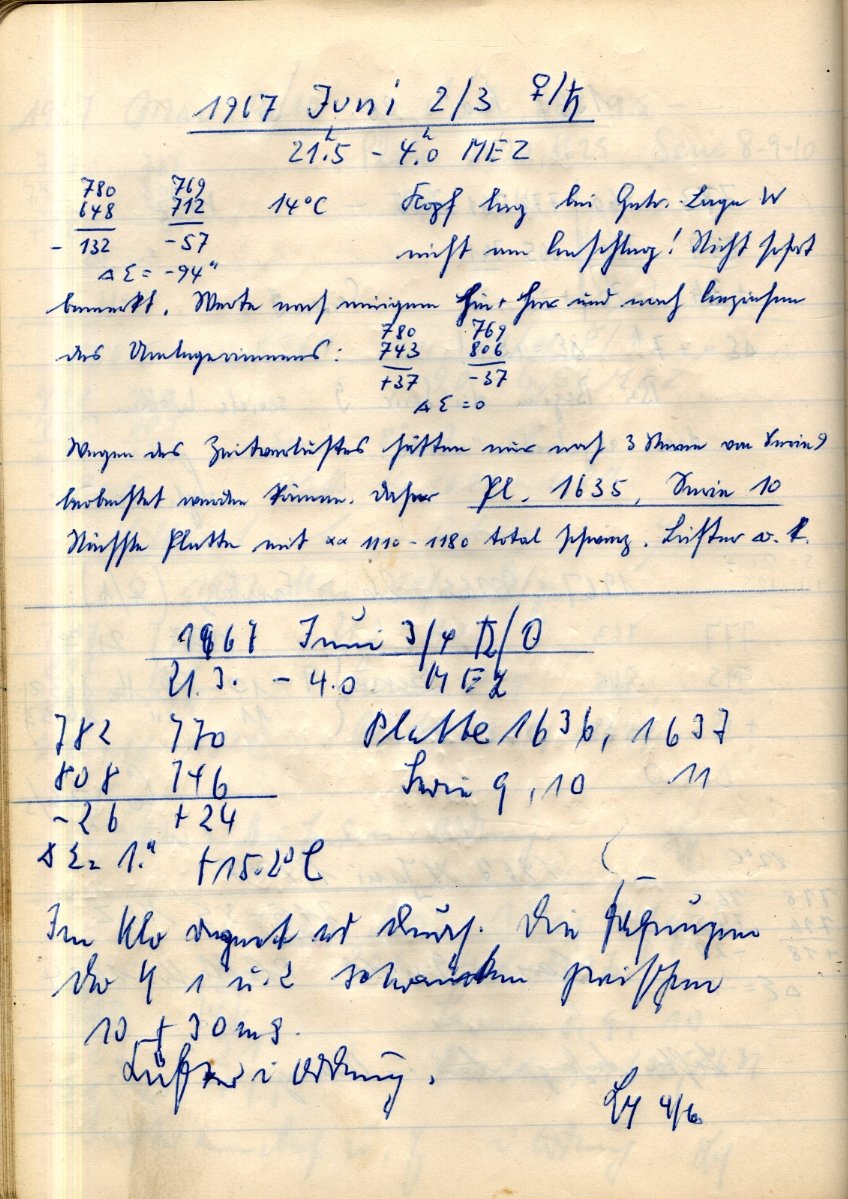 1967 Juni 2/3 ♀/♄
21.ʰ5 – 4.ʰ0 MEZ
780 769
648 712 14°C Kopf lag bei Getr. Lage W
- 132 -57 nicht am Anschlag! Nicht sofort
Δ Σ = -94"
bemerkt. Werte nach einigem Hin + Her und nach Anziehen
780 769
des Umlegerinnens: 743 806
+37 -37
Δ Σ = 0
Wegen des Zeitverlustes hätten nur noch 3 Sterne von Serie 9
beobachtet werden können. Daher Pl. 1635, Serie 10
Nächste Platte mit 1110-1180 total schwarz. Lüfter
1967 Juni 3/4 ♄/☉
21.3. – 4.0 MEZ
782 770 Platte 1636, 1637
808 746 Serie 9, 10 11
-26 +24
Δ Σ = 1." +15.2°C
Im Klo regnet es durch. Die
der 1 u. 2 schwanken zwischen
10 + 30 ms.
Lüfter i Ordnung.
4/6